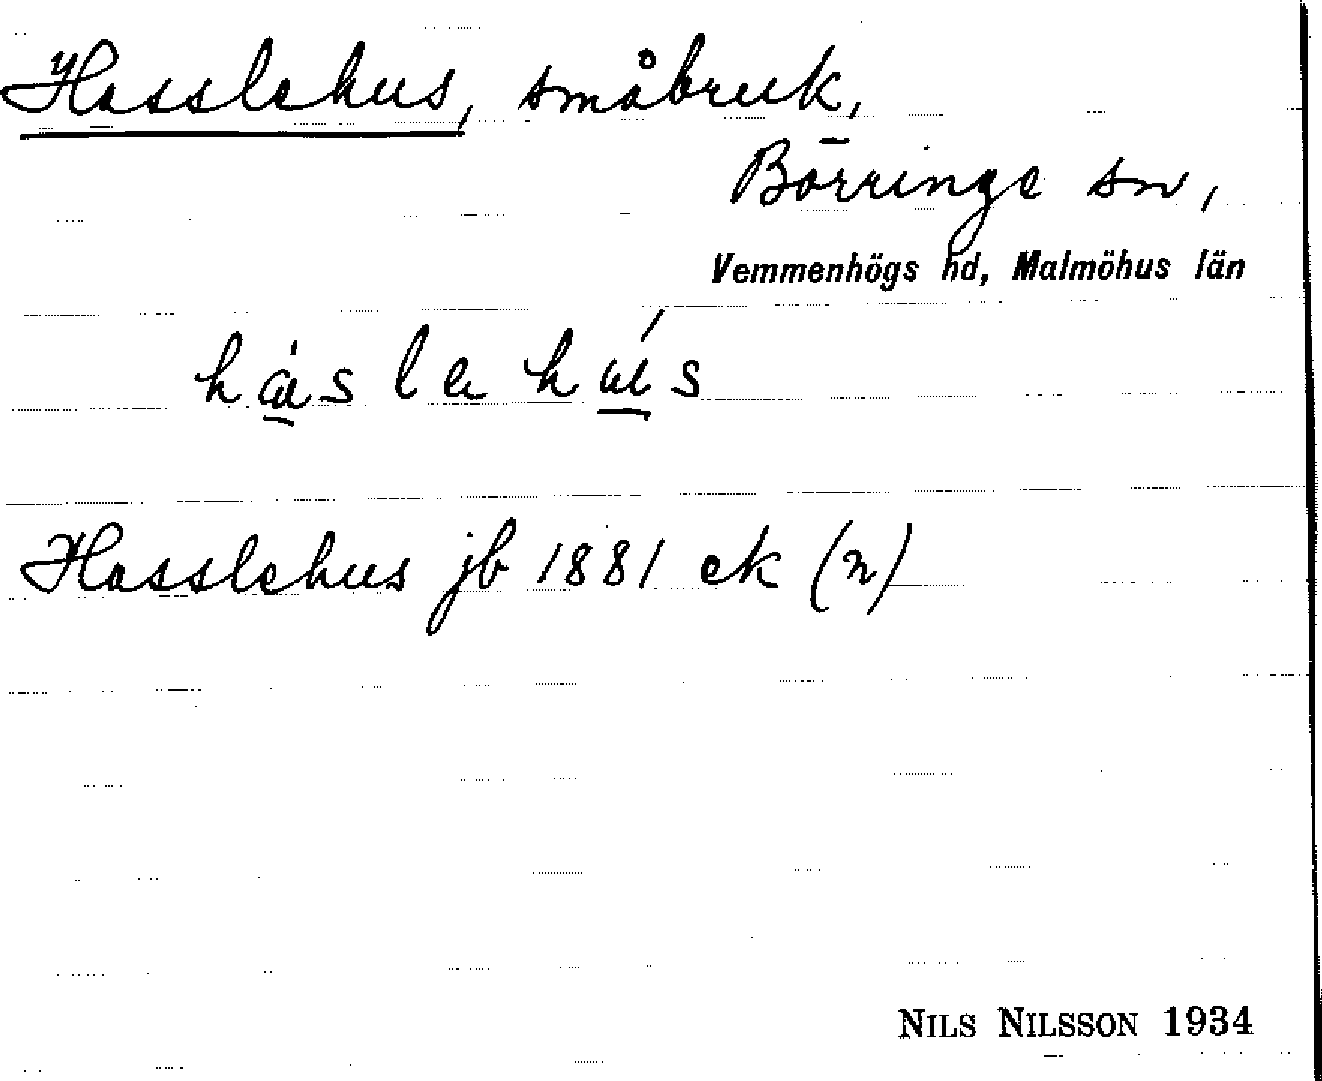 Hasslehus, småbruk,
Börringe sn,
Vemmenhögs hd, Malmöhus län
Hasslehus jb 1881 ek (n)
NILS NILSSON 1934